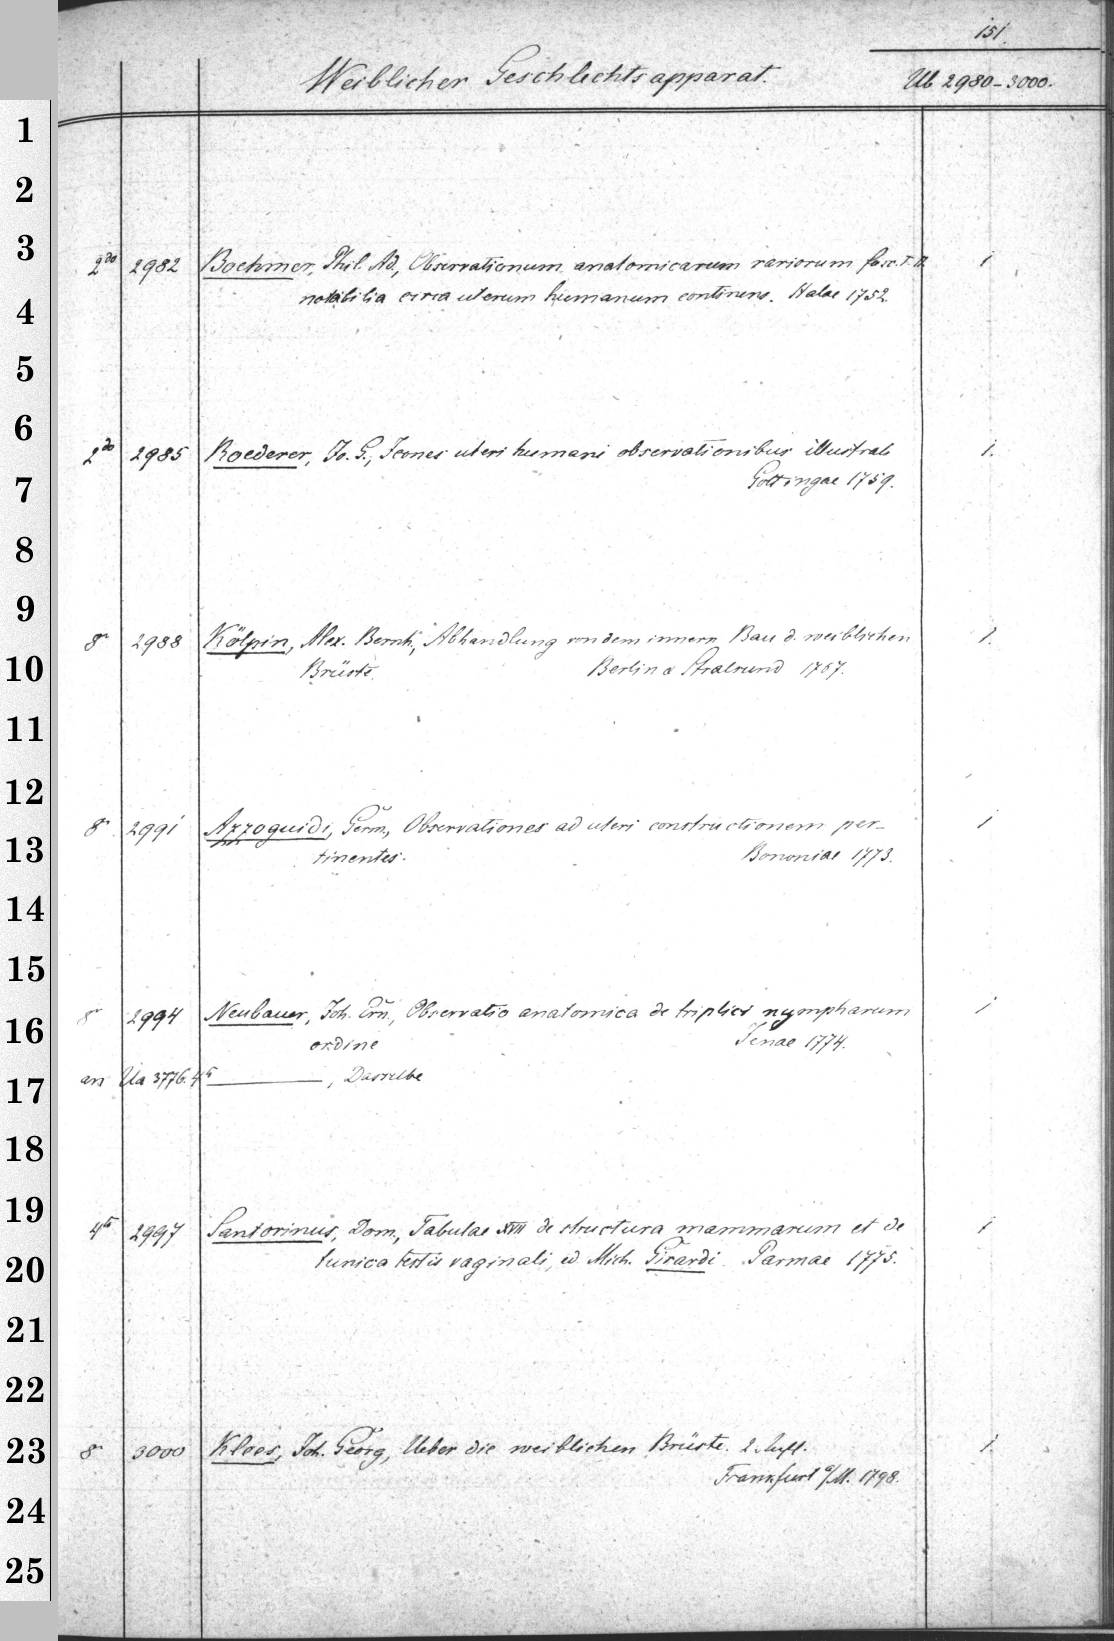 151.
Weiblicher Geschlechtsapparat. Ub 2980-3000.
2do 2982 Boehmer, Phil. Ad., Observationum anatomicarum rariorum fasc. I. II. 1
notabilia circa uterum humanum continens. Halae 1752.
2do 2985 Roederer, Jo. G., Icones uteri humani observationibus illustrats 1.
Gottingae 1759.
8o 2988 Kölpin, Alex. Bernh., Abhandlung von dem innern Bau d. weiblichen 1.
Brüste. Berlin & Stralsund 1767.
8o 2991 Azzoguidi, Germ., Observationes ad uteri constructionem per-
1
tinentes. Bononiae 1773.
8o 2994 Neubauer, Joh. Ern., Observatio anatomica de triplici nympharum 1
ordine Jenae 1774.
an Ua 3776. 4to ———, Dasselbe
4to 2997 Santorinus, Dom., Tabulae XVII de structura mammarum et de 1
tunica testis vaginali, ed. Mich. Girardi. Parmae 1775.
8o 3000 Kloes, Joh. Georg, Ueber die weiblichen Brüste. 2. Aufl. 1.
Frankfurt a/M. 1798.
1
2
3
4
5
6
7
8
9
10
11
12
13
14
15
16
17
18
19
20
21
22
23
24
25